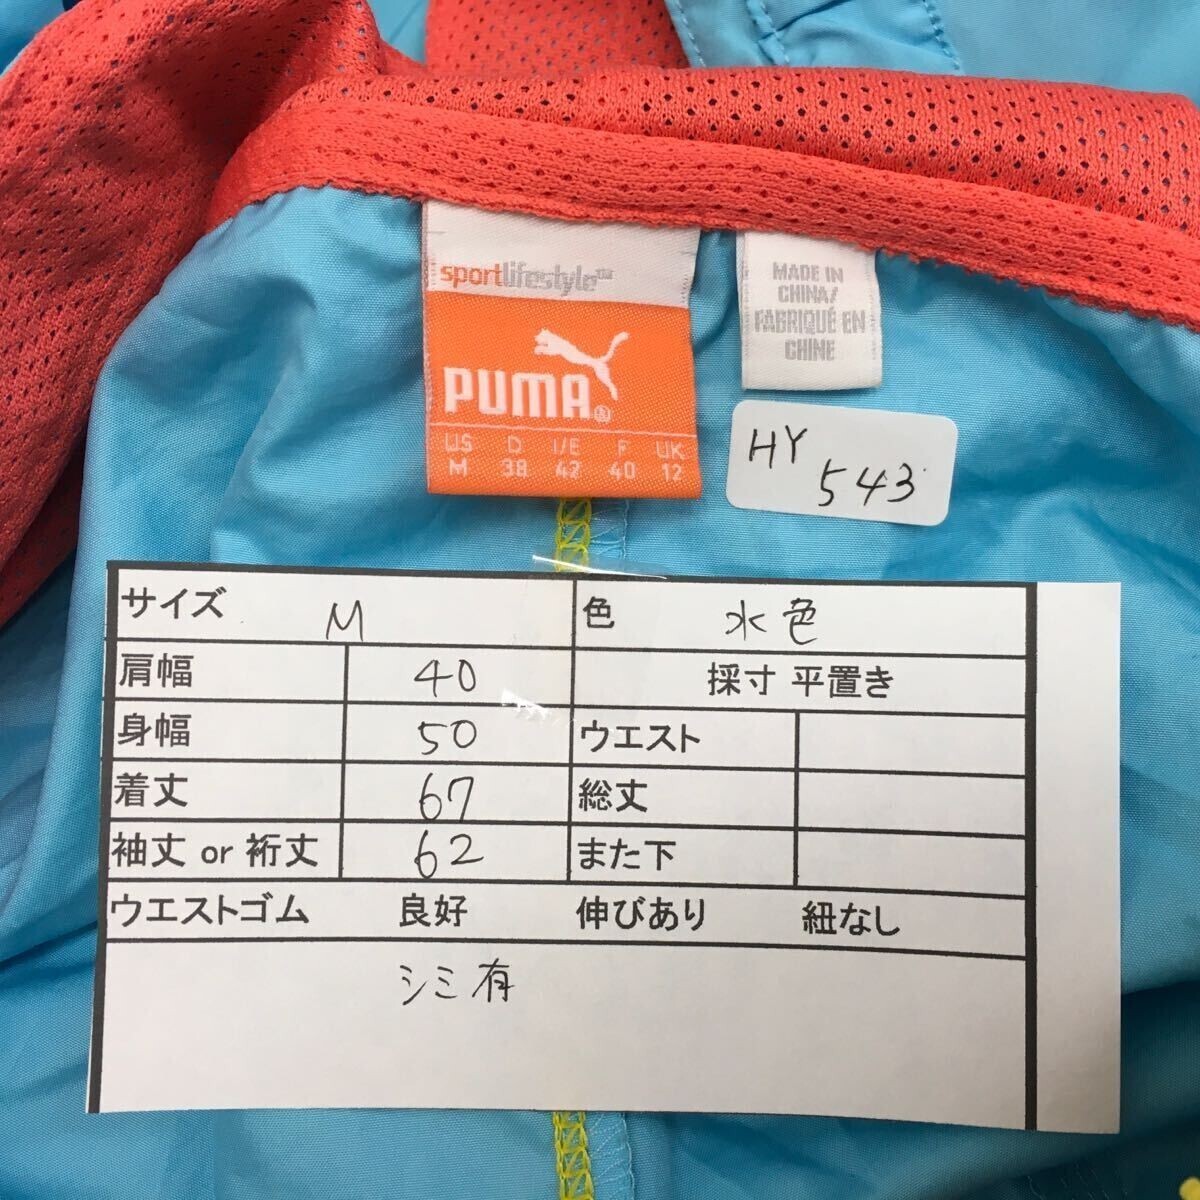 sportlifestyle™
PUMA®
US D I/E F UK
M 38 42 40 12
MADE IN
CHINA/
FABRIQUÉ EN
CHINE
HY
543
サイズ M 色 水色
肩幅 40 採寸 平置き
身幅 50 ウエスト
着丈 67 総丈
袖丈 or 裄丈 62 また下
ウエストゴム 良好 伸びあり 紐なし
シミ有